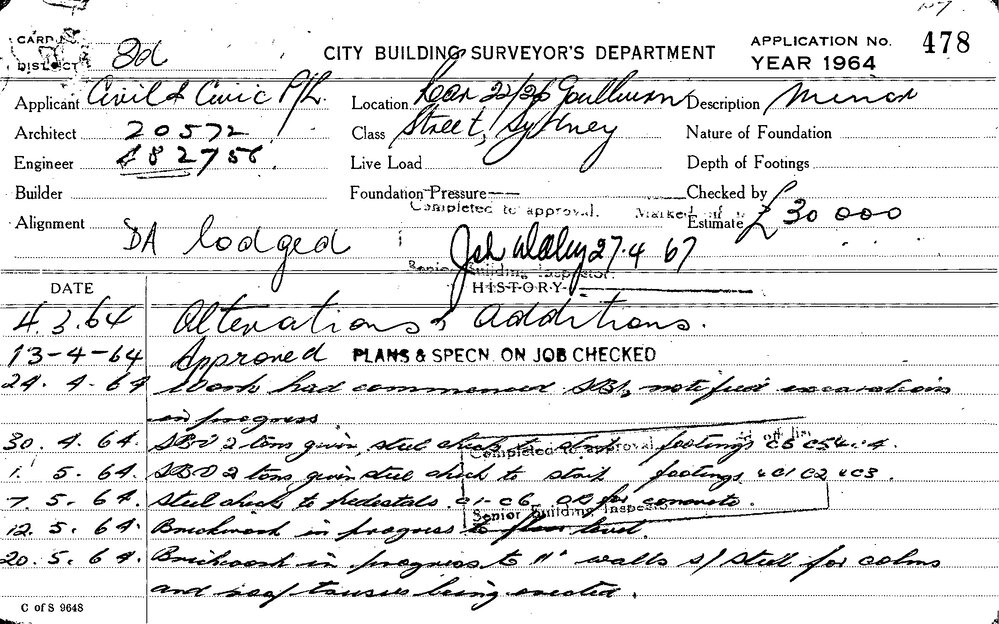 CARD No.
DISTRICT 3d
CITY BUILDING SURVEYOR'S DEPARTMENT
APPLICATION No. 478
YEAR 1964
Applicant Civil & Civic P/L. Location 22/26 Goulburn Description Minor
Architect 20572 Class Street, Sydney Nature of Foundation
Engineer 482756 Live Load Depth of Footings
Builder Foundation Pressure Checked by
Completed to approval. Marked off
Alignment Estimate £30 000
DA lodged 27.4 67
Senior Building Inspector.
HISTORY
DATE
4.3.64 Alterations & additions.
13-4-64 Approved PLANS & SPECN. ON JOB CHECKED
24.4.64 Work had commenced notified excavations
in progress
30.4.64. 2 tons given, steel check to footings C5 C4.
Completed to approval.
1.5.64. 2 tons given steel check to footings C1 C2 C3
7.5.64. Steel check to pedestals. C1-C6 OK for concrete.
Senior Building Inspector
12.5.64. Brickwork in progress to floor level.
20.5.64. Brickwork in progress to 11" walls s/steel for colms
and roof trusses being erected.
C of S 9648